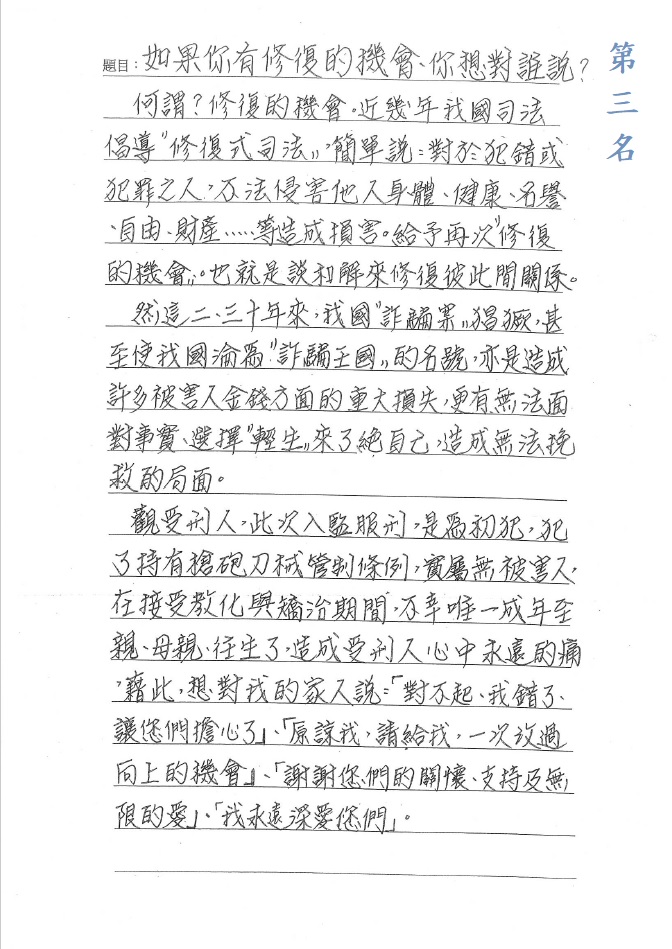 題目：如果你有修復的機會、你想對誰說？
第三名
何謂？修復的機會。近幾年我國司法
倡導"修復式司法"，簡單說：對於犯錯或
犯罪之人，不法侵害他人身體、健康、名譽
、自由、財產.....等造成損害。給予再次"修復
的機會"。也就是談和解來修復彼此間關係。
然這二、三十年來，我國"詐騙案"猖獗，甚
至使我國淪為"詐騙王國"的名號，亦是造成
許多被害人金錢方面的重大損失，更有無法面
對事實、選擇"輕生"來了絕自己，造成無法挽
救的局面。
觀受刑人，此次入監服刑，是為初犯，犯
了持有槍砲刀械管制條例，實屬無被害人，
在接受教化與矯治期間，不幸唯一成年至
親、母親、往生了，造成受刑人心中永遠的痛
，藉此，想對我的家人說：「對不起、我錯了、
讓您們擔心了」、「原諒我，請給我，一次改過
向上的機會』、「謝謝您們的關懷、支持及無
限的愛」、「我永遠深愛您們」。